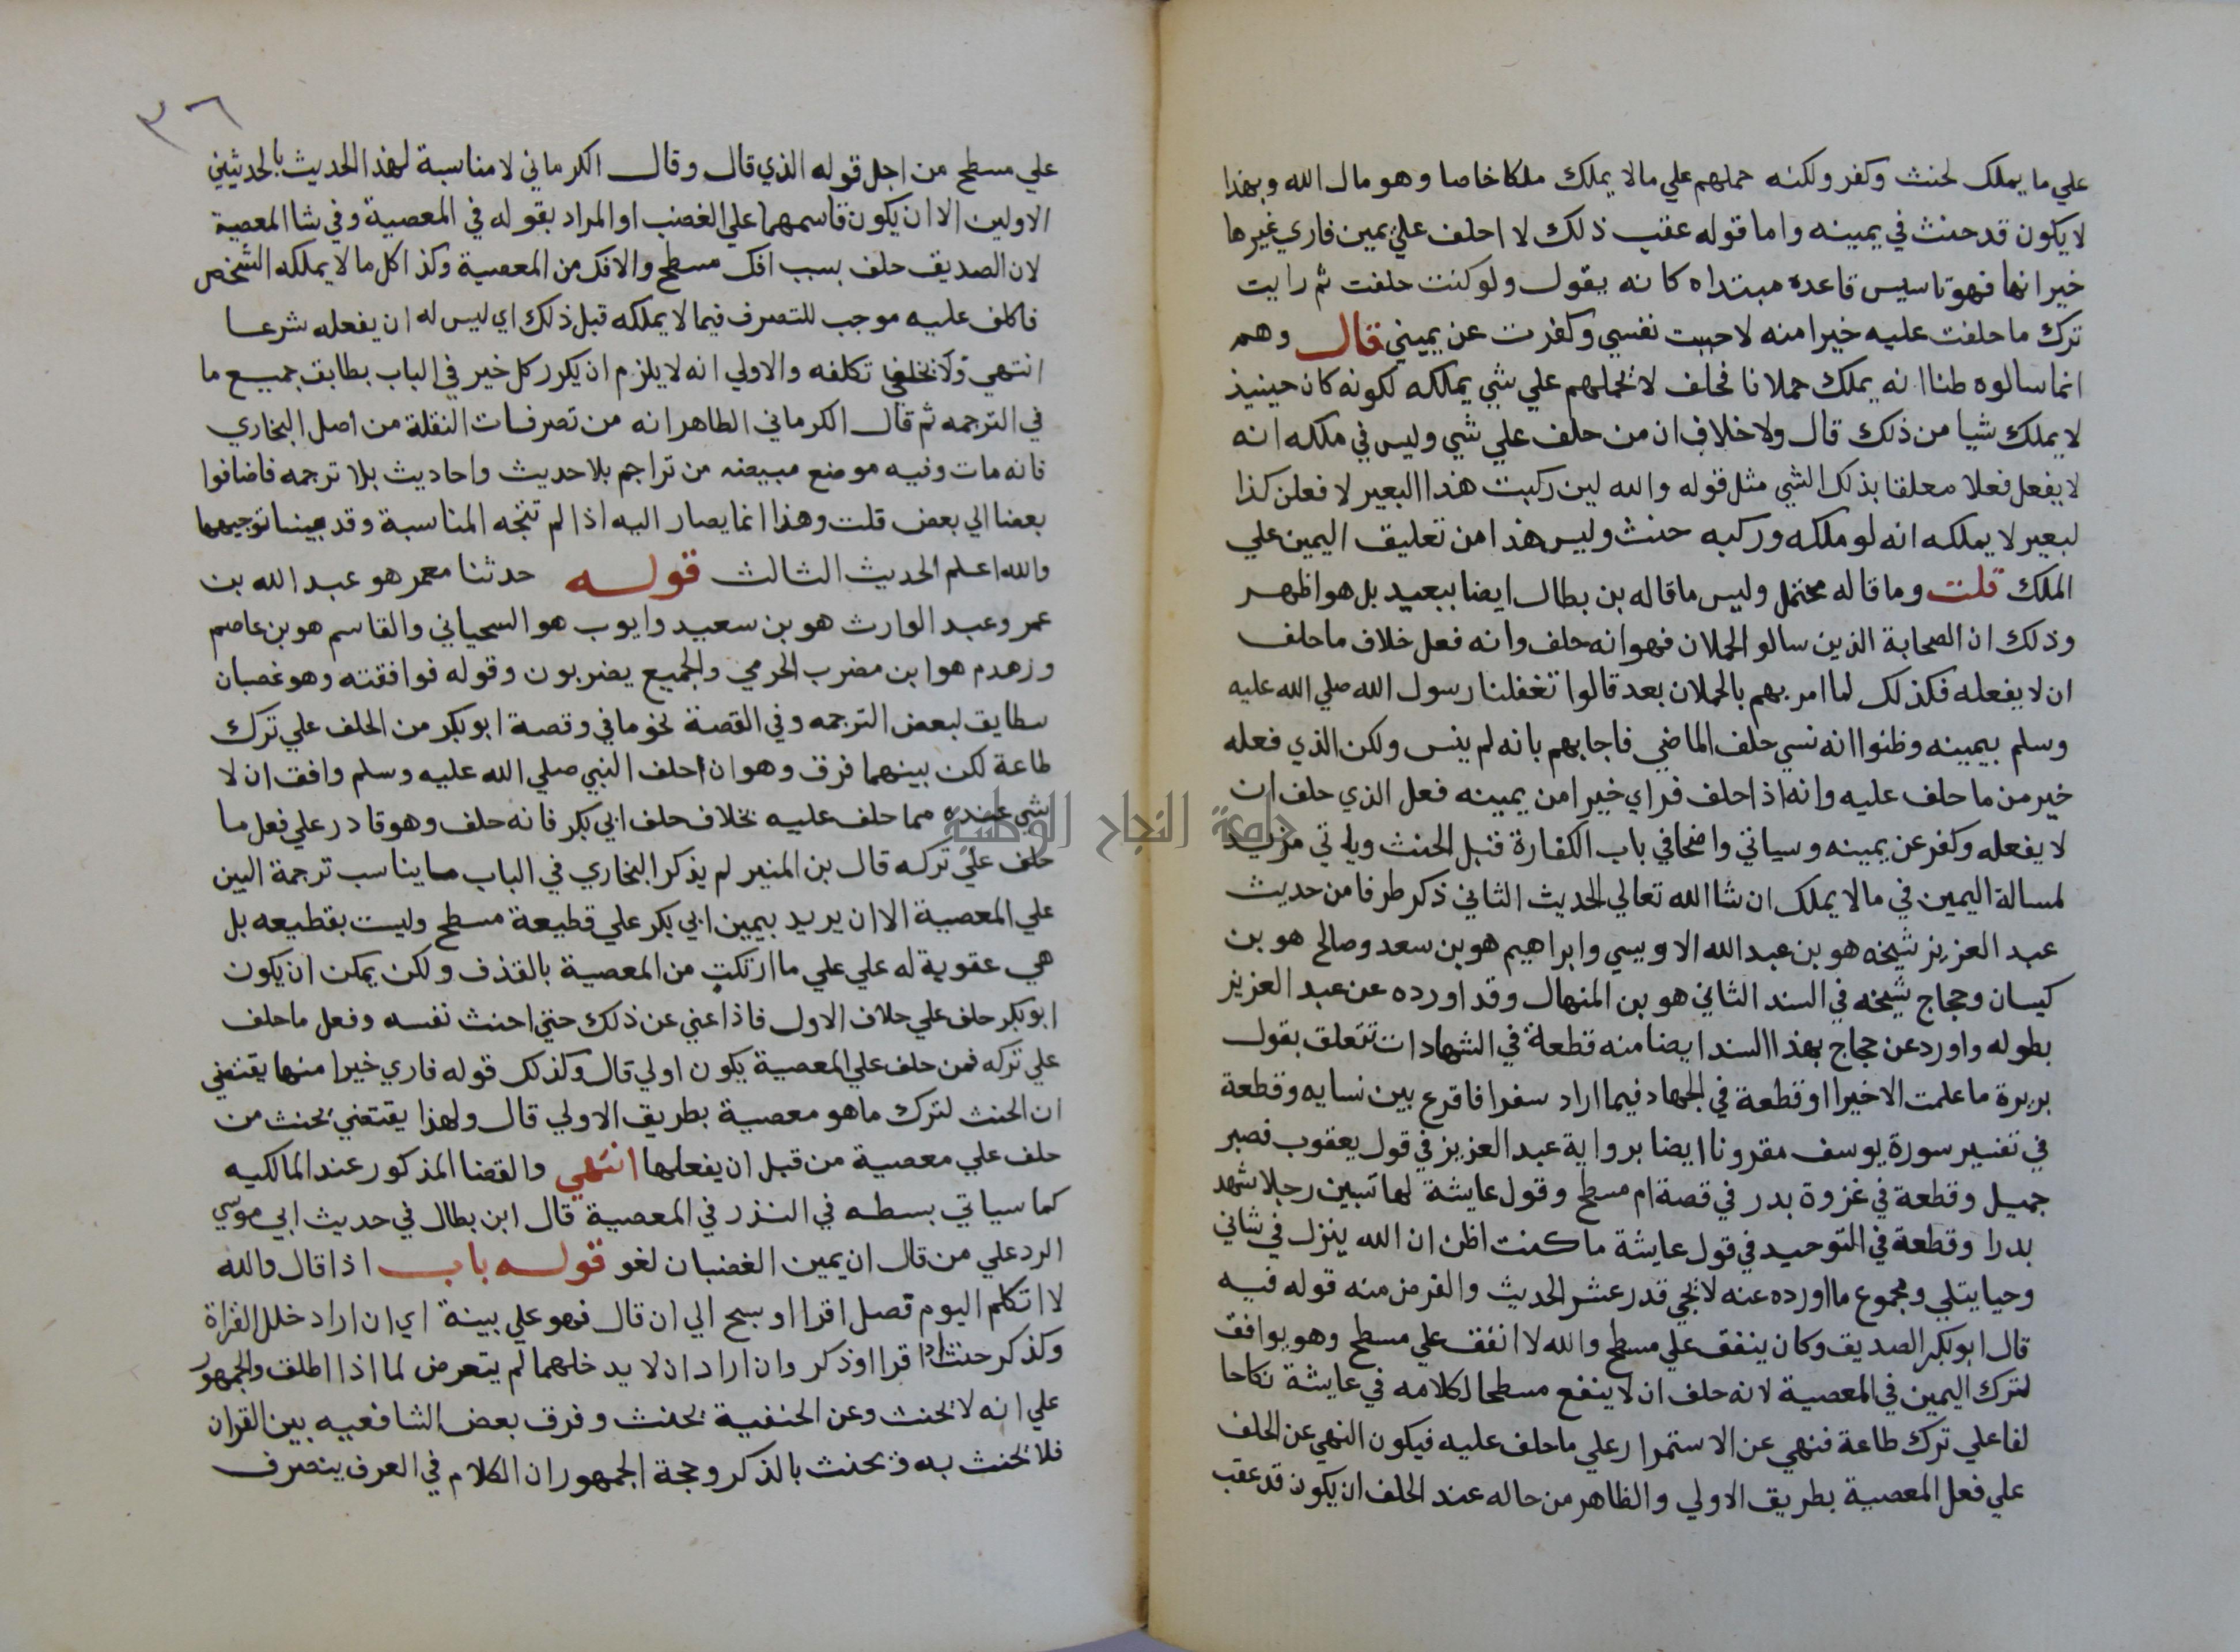 علي ما يملك لحنث وكفر ولكنه حملهم علي ما لا يملك ملكا خاصا وهو مال الله وبهذا
لا يكون قد حنث في يمينه واما قوله عقب ذلك لا احلف علي يمين فاري غيرها
خيرا نها فهو تاسيس قاعدة مبتداه كانه يقول ولو كنت حلفت ثم رايت
ترك ما حلفت عليه خيرا منه لاحببت نفسي وكفرت عن يميني قال وهم
انما سالوه طنا انه يملك حملانا فحلف لا يحملهم علي شي يملكه لكونه كان حينيذ
لا يملك شيا من ذلك قال ولا خلاف ان من حلف علي شي وليس في ملكه انه
لا يفعل فعلا معلقا بذلك الشي مثل قوله والله لين ركبت هذا البعير لافعلن كذا
لبعير لا يملكه انه لو ملكه وركبه حنث وليس هذا من تعليق اليمين علي
الملك قلت وما قاله محتمل وليس ما قاله بن بطال ايضا ببعيد بل هو اظهر
وذلك ان الصحابة الذين سالو الحملان فهوا نه حلف وانه فعل خلاف ما حلف
ان لا يفعله فكذلك لما امر بهم بالحملان بعد قالوا تغفلنا رسول الله صلي الله عليه
وسلم بيمينه وظنوا انه نسي حلف الماضي فاجابهم بانه لم ينس ولكن الذي فعله
خير من ما حلف عليه وانه اذا حلف فراي خيرا من يمينه فعل الذي حلف ان
لا يفعله وكفر عن يمينه وسياتي واضحا في باب الكفارة قبل الحنث وياتي مزيد
لمسالة اليمين في ما لا يملك ان شا الله تعالي الحديث الثاني ذكر طرفا من حديث
عبد العزيز شيخه هو بن عبد الله الاويسي وابراهيم هو بن سعد وصالح هو بن
كيسان وحجاج شيخه في السند الثاني هو بن المنهال وقد اورده عن عبد العزيز
بطوله واورد عن حجاج بهذا السند ايضا منه قطعة في الشهادات تتعلق بقول
بريرة ما علمت الا خيرا او قطعة في الجهاد فيما اراد سفرا فاقرع بين نسايه وقطعة
في تفسير سورة يوسف مقرونا ايضا برواية عبد العزيز في قول يعقوب فصبر
جميل وقطعة في غزوة بدر في قصة ام مسطح وقول عايشة لها تسبين رجلا شهد
بدرا وقطعة في التوحيد في قول عايشة ما كنت اظن ان الله ينزل في شاني
وحيا يتلي ومجموع ما اورده عنه لا يجي قدر عشر الحديث والغرض منه قوله فيه
قال ابو بكر الصديق وكان ينفق علي مسطح والله لا انفق علي مسطح وهو يوافق
لترك اليمين في المعصية لانه حلف ان لا ينفع مسطحا لكلامه في عايشة نكاحا
لفا علي ترك طاعة فنهي عن الاستمرار علي ما حلف عليه فيكون النهي عن الحلف
علي فعل المعصية بطريق الاولي والظاهر من حاله عند الحلف ان يكون قد عقب
٣٦
علي مسطح من اجل قوله الذي قال وقال الكرماني لا مناسبة لهذا الحديث بالحديثين
الاولين الا ان يكون قاسمهما علي الغضب او المراد بقوله في المعصية وفي شا المعصية
لان الصديق حلف بسبب افك مسطح والافك من المعصية وكذا كل ما لا يملكه الشخص
فالحلف عليه موجب للتصرف فيما لا يملكه قبل ذلك اي ليس له ان يفعله شرعا
انتهي ولا يخفي تكلفه والاولي انه لا يلزم ان يكور كل خبر في الباب بطابق جميع ما
في الترجمه ثم قال الكرماني الطاهر انه من تصرفات النقلة من اصل البخاري
فانه مات وفيه موضع مبيضه من تراجم بلا حديث واحاديث بلا ترجمه فاضافوا
بعضا الي بعض قلت وهذا انما يصار اليه اذا لم تتجه المناسبة وقد بينا توجيهها
والله اعلم الحديث الثالث قوله حدثنا معمر هو عبد الله بن
عمر وعبد الوارث هو بن سعيد وايوب هو السحياني والقاسم هو بن عاصم
وزهدم هو ابن مضرب الجرمي والجميع يضربون وقوله فوافقته وهو غضبان
سطايق لبعض الترجمه وفي القصة نحو ما في وقصة ابو بكر من الحلف علي ترك
طاعة لكن بينهما فرق وهو ان احلف النبي صلي الله عليه وسلم وافق ان لا
شي عنده مما حلف عليه بخلاف حلف ابي بكر فانه حلف وهو قادر علي فعل ما
حلف علي تركه قال بن المنير لم يذكر البخاري في الباب ما يناسب ترجمة اليين
علي المعصية الا ان يريد بيمين ابي بكر علي قطيعة مسطح وليست بقطيعه بل
هي عقوبة له علي علي ما ارتكب من المعصية بالقذف ولكن يمكن ان يكون
ابو بكر حلف علي خلاف الاول فاذا عني عن ذلك حتي احنث نفسه وفعل ما حلف
علي تركه فمن حلف علي المعصية يكون اولي قال وكذلك قوله فاري خيرا منها يقتضي
ان الحنث لترك ما هو معصية بطريق الاولي قال ولهذا يقتضي بحنث من
حلف علي معصية من قبل ان يفعلها انتهي والقضا المذكور عند المالكيه
كما سياتي بسطه في النذر في المعصية قال ابن بطال في حديث ابي موسي
الرد علي من قال ان يمين الغضبان لغو قوله باب اذا قال والله
لا اتكلم اليوم فصل اقرا او سبح الي ان قال فهو علي بينة اي ان اراد خلل القراة
وكذكر حنث اذا قرا او ذكر وان اراد ان لا يدخلهما لم يتعرض لما اذا اطلق والجمهور
علي انه لا يحنث وعن الحنفية يحنث وفرق بعض الشافعيه بين القران
فلا يحنث به ويحنث بالذكر وحجة الجمهور ان الكلام في العرف ينصرف
جامعة النجاح الوطنية